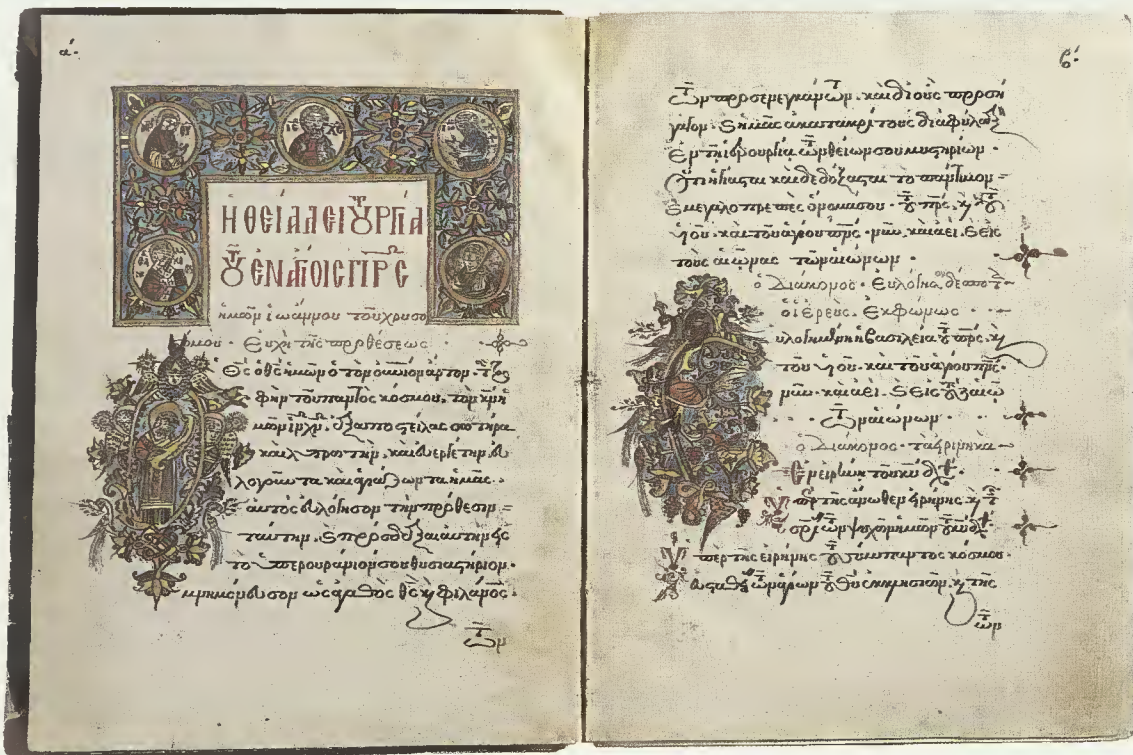 α´.
Η ΘΕΙΑ ΛΕΙΤΟΥΡΓΙΑ
ΤΟΥ ΕΝ ΑΓΙΟΙΣ ΠΡΣ
ἡμῶν ἰωάννου τοῦ χρυσο
στόμου · Εὐχὴ τῆς προθέσεως
Θς ὁ θς ἡμῶν ὁ τὸν οὐνιον ἄρτον τὴν
τροφὴν τοῦ παντὸς κόσμου, τὸν κν ἡ
μῶν ιν χν. ἐξαποστείλας σωτῆρα
καὶ λυτρωτὴν, καὶ εὐεργέτην, εὐ
λογοῦντα καὶ ἁγιάζοντα ἡμᾶς.
αὐτὸς εὐλόγησον τὴν πρόθεσιν
ταύτην, καὶ πρόσδεξαι αὐτὴν εἰς
τὸ ὑπερουράνιόν σου θυσιαστήριον.
μνημόνευσον ὡς ἀγαθὸς θς καὶ φιλάνος.
τῶν
β´.
τῶν προσενεγκάντων. καὶ δι' οὓς προσή
γαγον. καὶ ἡμᾶς ἀκατακρίτους διαφύλαξον
ἐν τῇ ἱερουργίᾳ τῶν θείων σου μυστηρίων.
Ὅτι ἡγίασται καὶ δεδόξασται τὸ πάντιμον
καὶ μεγαλοπρεπὲς ὄνομά σου. τοῦ πρς. καὶ τοῦ
υἱοῦ. καὶ τοῦ ἁγίου πνς. νῦν. καὶ ἀεὶ. καὶ εἰς
τοὺς αἰῶνας τῶν αἰώνων.
ὁ Διάκονος. Εὐλόγησον δέσποτα
ὁ ἱερεὺς. Ἐκφώνως.
υλογημένη ἡ βασιλεία τοῦ πρς. καὶ
τοῦ υἱοῦ. καὶ τοῦ ἁγίου πνς.
νῦν. καὶ ἀεὶ. καὶ εἰς τοὺς αἰῶ
τῶν αἰώνων.
ὁ Διάκονος. τὰ εἰρηνικὰ
Ἐν εἰρήνῃ τοῦ κυ δεηθ.
Ὑπὲρ τῆς ἄνωθεν εἰρήνης καὶ τῆς
σρίας τῶν ψυχῶν ἡμῶν τοῦ κυ δε.
Ὑπὲρ τῆς εἰρήνης τοῦ σύμπαντος κόσμου.
εὐσταθείας τῶν ἁγίων τοῦ θυ ἐκκλησιῶν. καὶ τῆς
τῶν